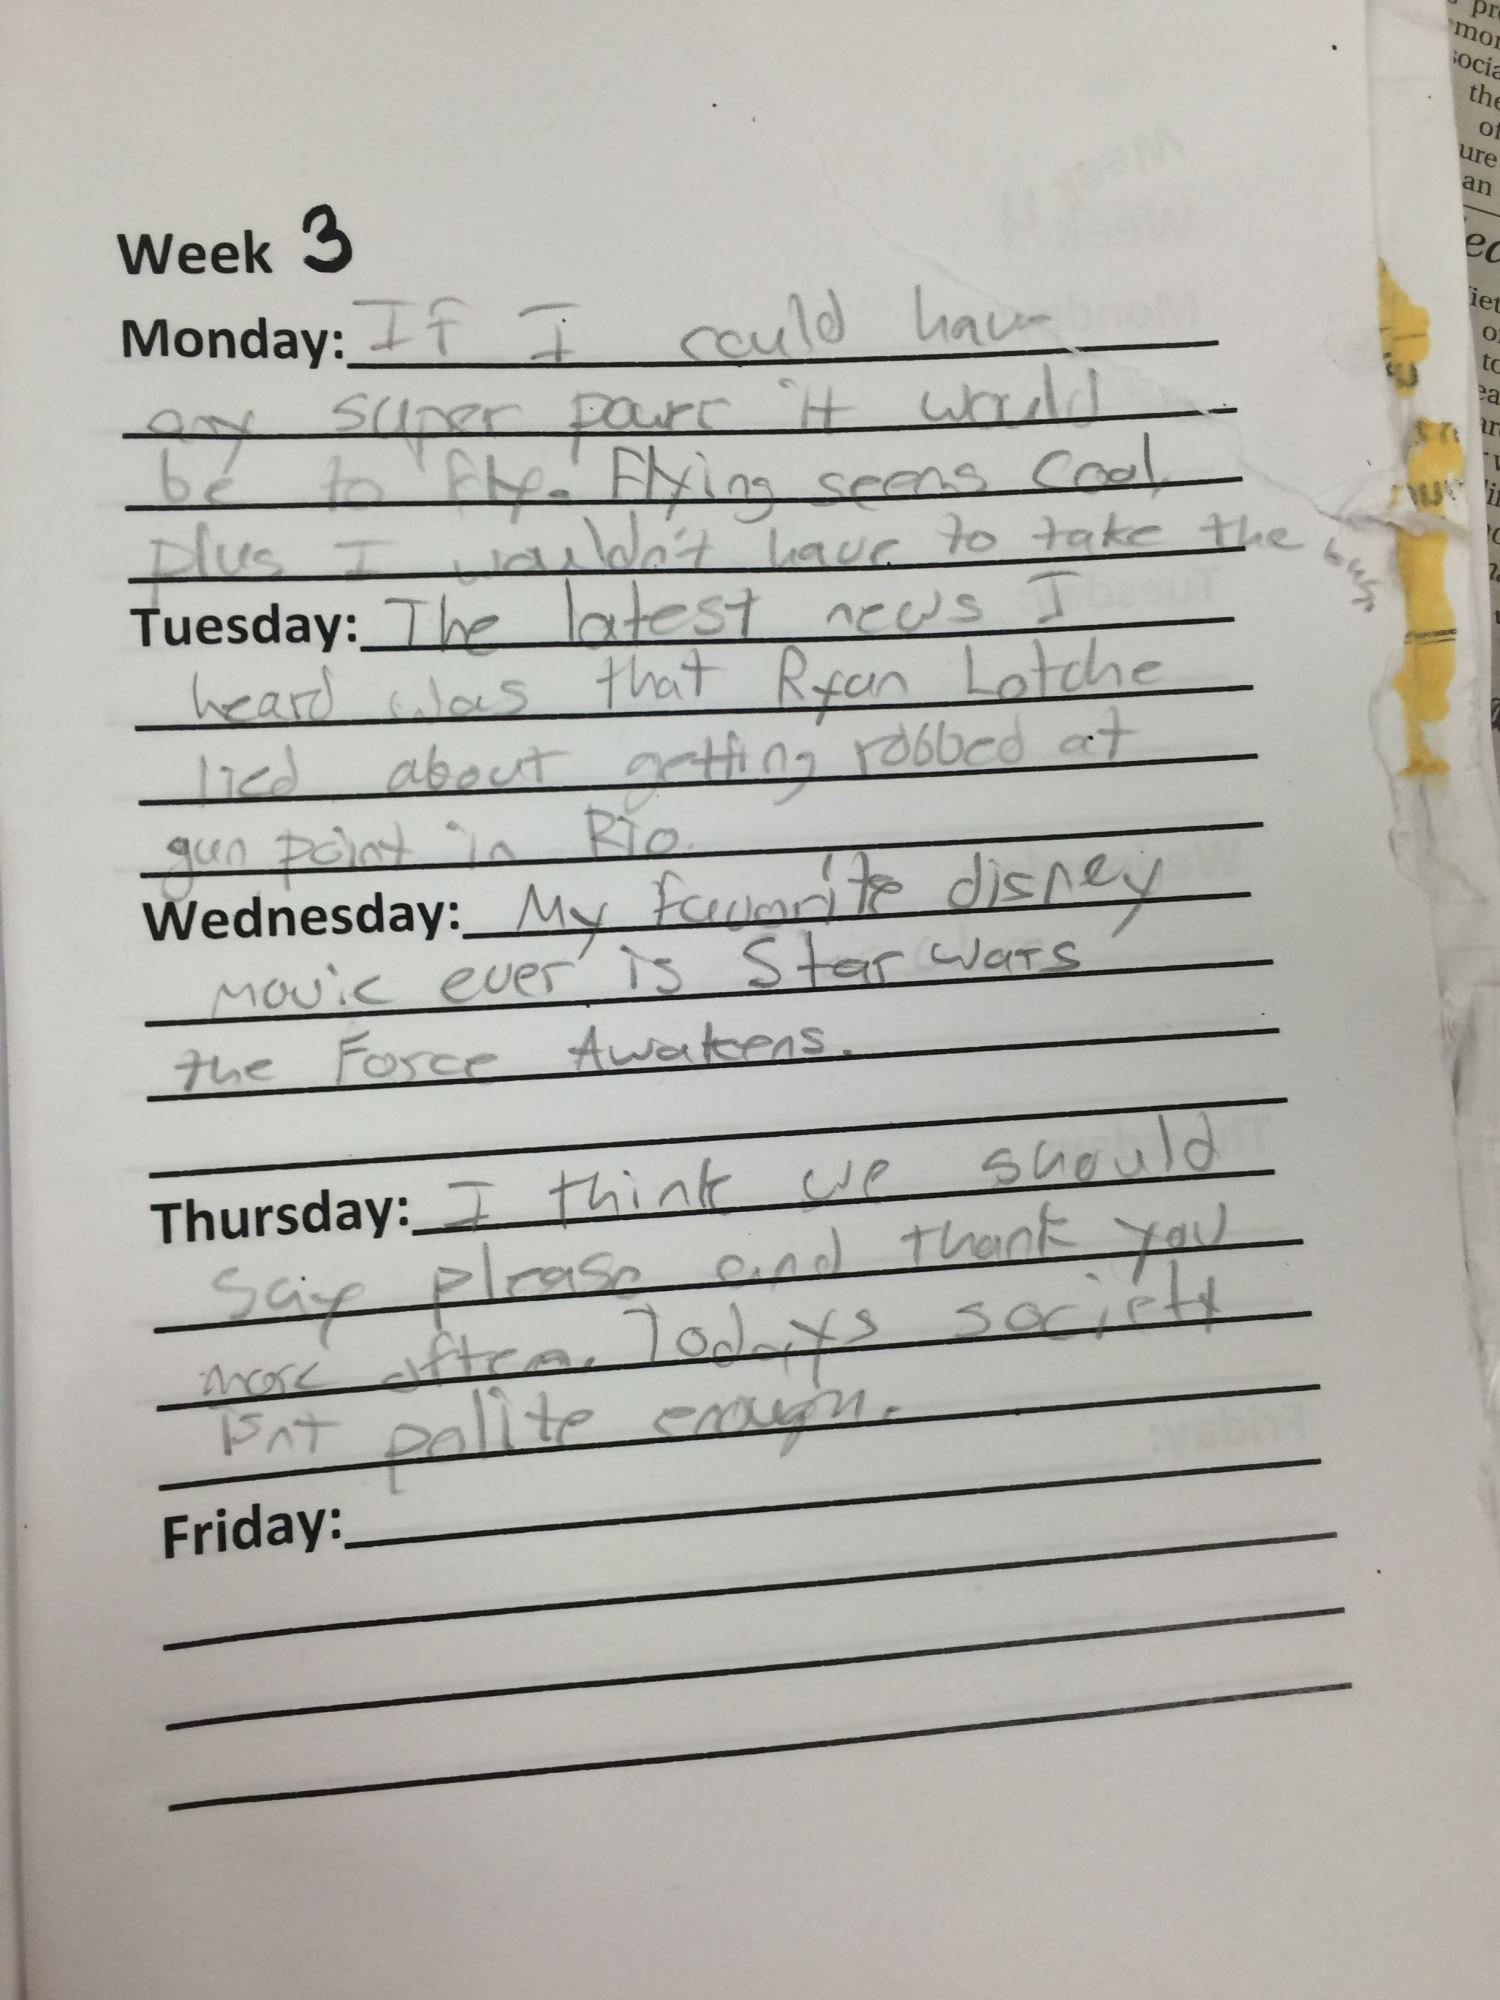 Week 3
Monday: If I could have
any super powr it would
be to fly. Flying seems Cool,
plus I wouldn't have to take the bus
Tuesday: The latest news I
heard was that Ryan Lotche
lied about getting robbed at
gun point in Rio.
Wednesday: My favorite disney
movie ever is Star Wars
the Force Awakens.
Thursday: I think we should
say please and thank you
more often. Todays society
isnt polite enough.
Friday:
pr
mor
socia
the
of
ure
an